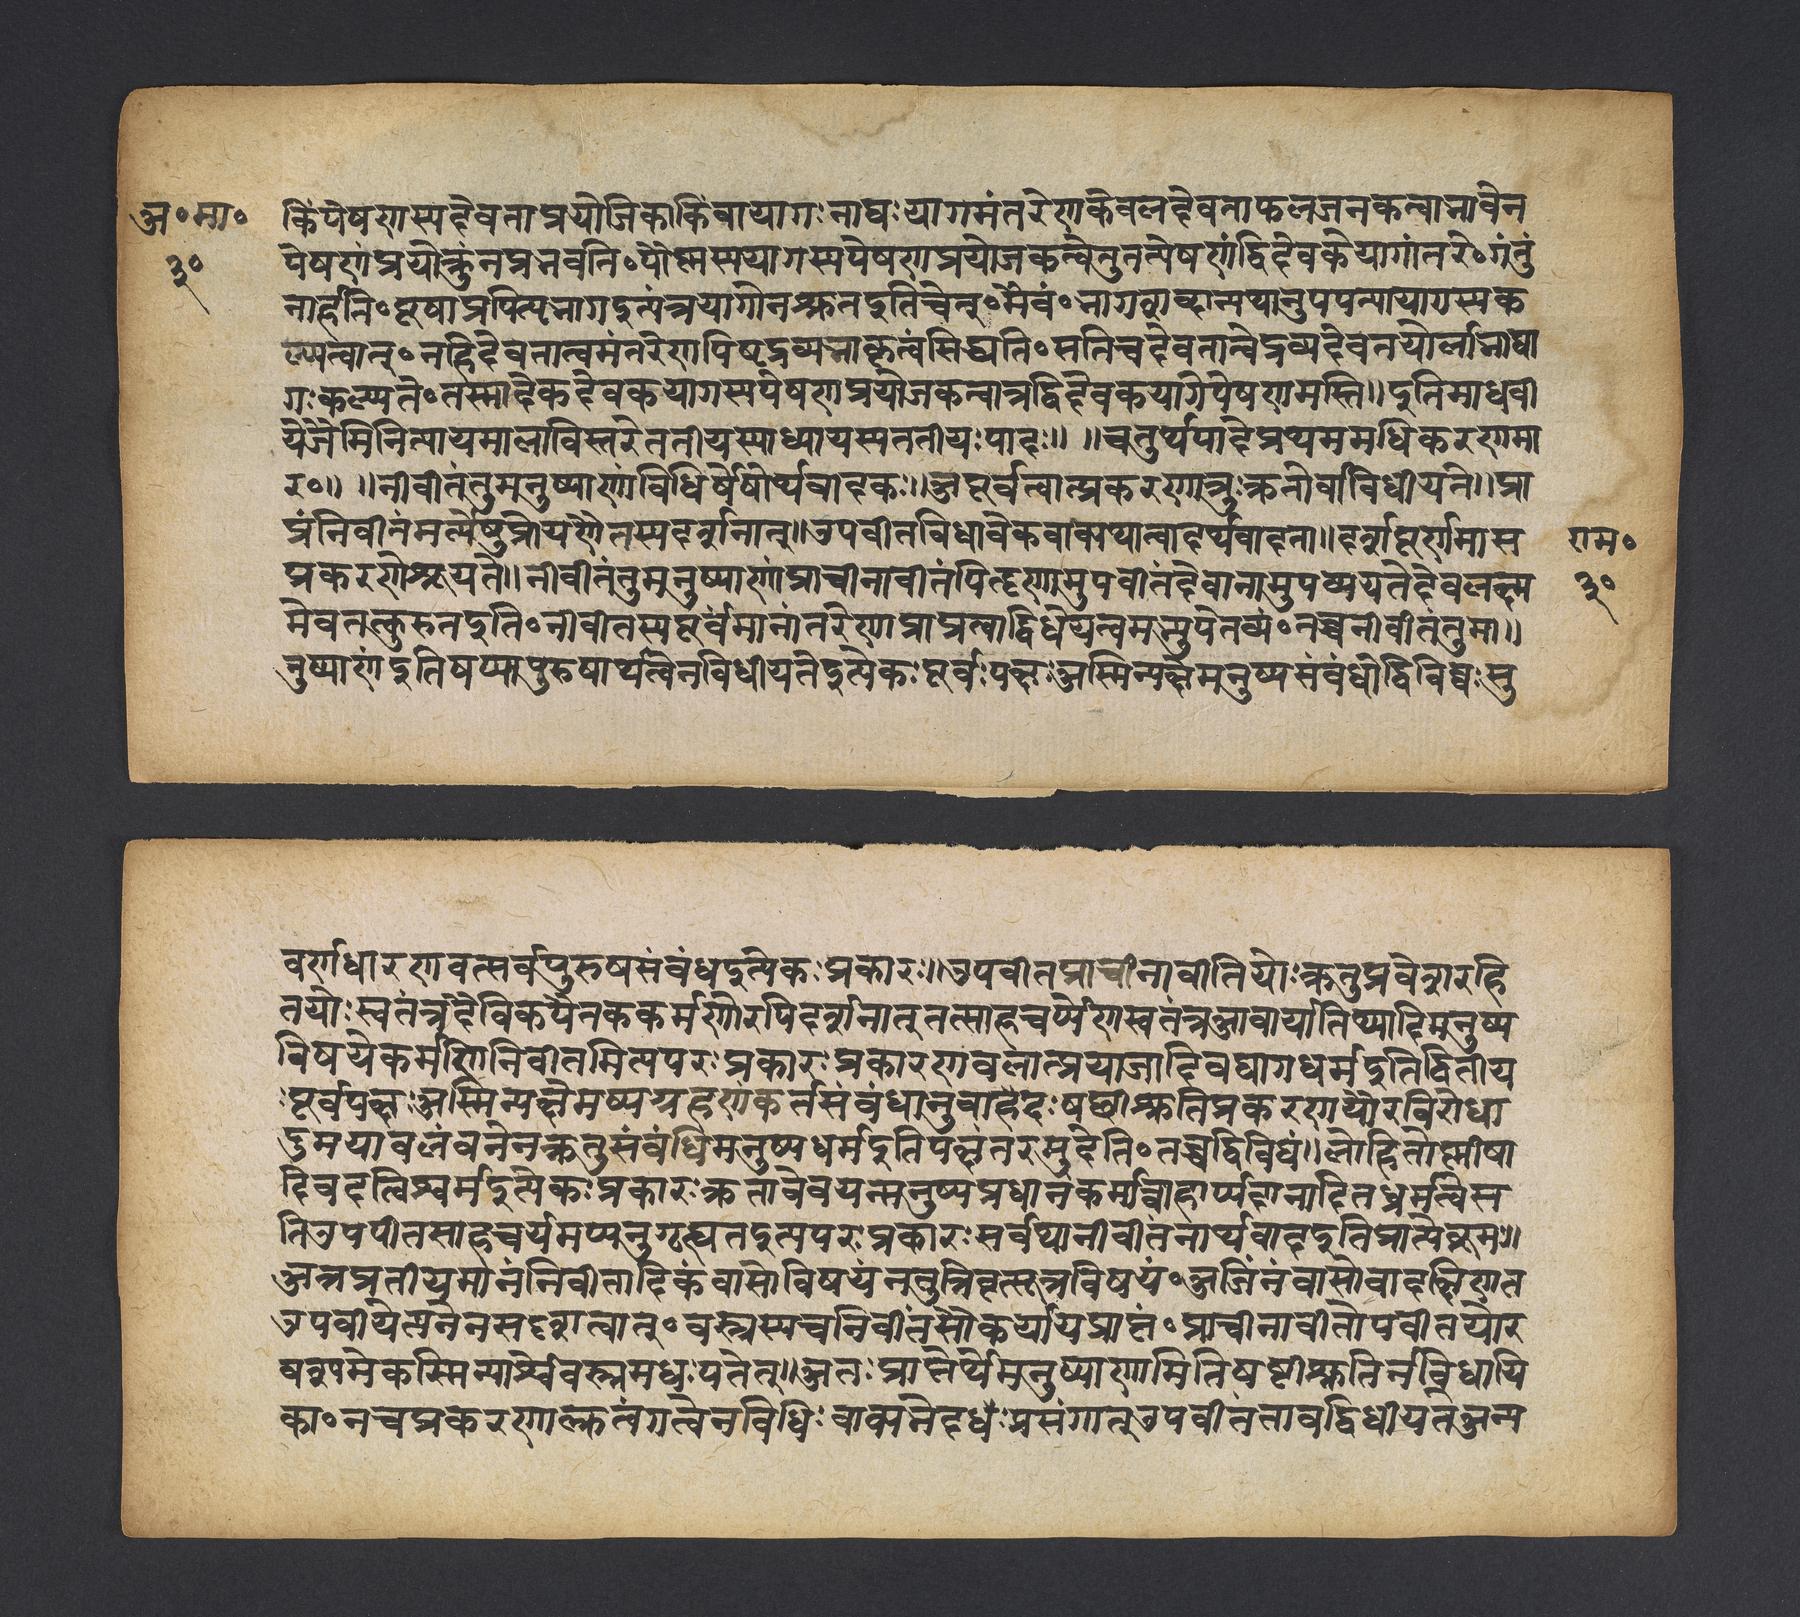 अ॰मा॰
३०
किंपेषणस्यदेवताप्रयोजिकाकिंवायागःनाद्यःयागमंतरेणकेवलदेवताफलजनकत्वाभावेन
पेषणंप्रयोक्तुंनप्रभवति॰पौष्णस्ययागस्यपेषणप्रयोजकत्वेतुनत्पेषणंद्विदेवकेयागांतरे॰गंतुं
नार्हति॰पूषाप्रपित्पृभागइत्यत्रयागोनश्रुतइतिचेत्॰मैवं॰भागशब्दान्यथानुपपत्यायागस्यक
ल्प्यत्वात्॰नहिदेवतात्वमंतरेणपिष्टद्रव्यभाक्त्वंसिद्ध्यति॰सतिचदेवतात्वेद्रव्यदेवतयोर्लाभाद्या
गःकल्प्यते॰तस्मादेकदेवकयागसपेषणप्रयोजकत्वान्नद्विदेवकयागेपेषणमस्ति॥इतिमाधवी
येजैमिनित्यायमालाविस्तरेततीयस्याध्यायस्यततीयःपादः॥ ॥चतुर्थपादेप्रथममधिकरणमा
र॰॥ ॥नीवीतंतुमनुष्याणांविधिर्षेषोर्थवादकः॥अपूर्वत्वात्प्रकरणान्नुःक्रतोर्वाविधीयते॥प्रा
प्तंनिवीतंमर्त्येषुप्रायेणैतस्यदर्शनात्॥उपवीतविधावेकवाक्यथात्वादर्थवादता॥दर्शपूर्णमास
प्रकरणेश्रूयते॥नीवीतंतुमनुष्याणांप्राचीनावीतंपितॄणामुपवीतंदेवानामुपव्ययतेदेवलक्ष्म
मेवतत्कुरुतइति॰नीवीतस्यपूर्वंमानांतरेणाप्राप्तत्वाद्विधेयत्वमभ्युपेतव्यं॰तच्चनीवीतंतुमा॥
नुष्याणंइतिषष्यापुरुषार्थत्वेनविधीयतेइत्येकःपूर्वःपक्षःअस्मिन्पक्षेमनुष्यसंबंधोद्विविधःसु
राम॰
३०
वर्णधारणवत्सर्वपुरुषसंबंधइत्येकःप्रकारः॥उपवीतप्राचीनावीतियोःक्रतुप्रवेशरहि
तयोःस्वतंत्रदैविकपैतककर्मणोरपिदर्शनात्तत्साहचर्य्येणस्वतंत्रभावार्यातिथ्यादिमनुष्य
विषयेकर्मणिनिवीतमित्यपरःप्रकारःप्रकारणवलात्प्रयाजादिवद्यागधर्मइतिद्वितीय
ःपूर्वपक्षःअस्मिन्पक्षेमष्यग्रहणंकर्तसंबंधानुवादेदःषष्ठीश्रुतिप्रकरणयोरविरोधा
दुमयावलंवनेनक्रतुसंबंधिमनुष्यधर्मइतिपक्षंतरमुदेति॰तच्चद्विविधं॥लोहितोष्णीषा
दिवदत्विग्धर्मइत्येकःप्रकारःक्रतावेवयन्मनुष्यप्रधानंकर्मान्वाहार्य्यदानादितधर्मत्वेस
तिउपपीतसाहचर्यमप्यनुगृह्यतइत्यपरःप्रकारःसर्वथानीवीतंनार्थवादइतिप्राप्तेब्रूमः॥
अत्रप्रतीयमानंनिवीतादिकंवासोविषयंनतुत्रिवृत्सूत्रविषयं॰अजिनंवासोवादक्षिणत
उपवीयेत्यनेनसदृशत्वात्॰वस्त्रस्यचनिवीतंसौकर्यायप्राप्तं॰प्राचीनावीतोपवीतयोर
वश्यमेकस्मिन्पार्श्वेवस्त्रमधःपतेत्॥अतःप्राप्तेर्थेमनुष्याणामितिषष्टीश्रुतिर्नविधायि
का॰नचप्रकरणात्क्रत्वंगत्वेनविधिःवाक्यभेदप्रसंगात्उपवीतंतावद्विधीयतेअन्य